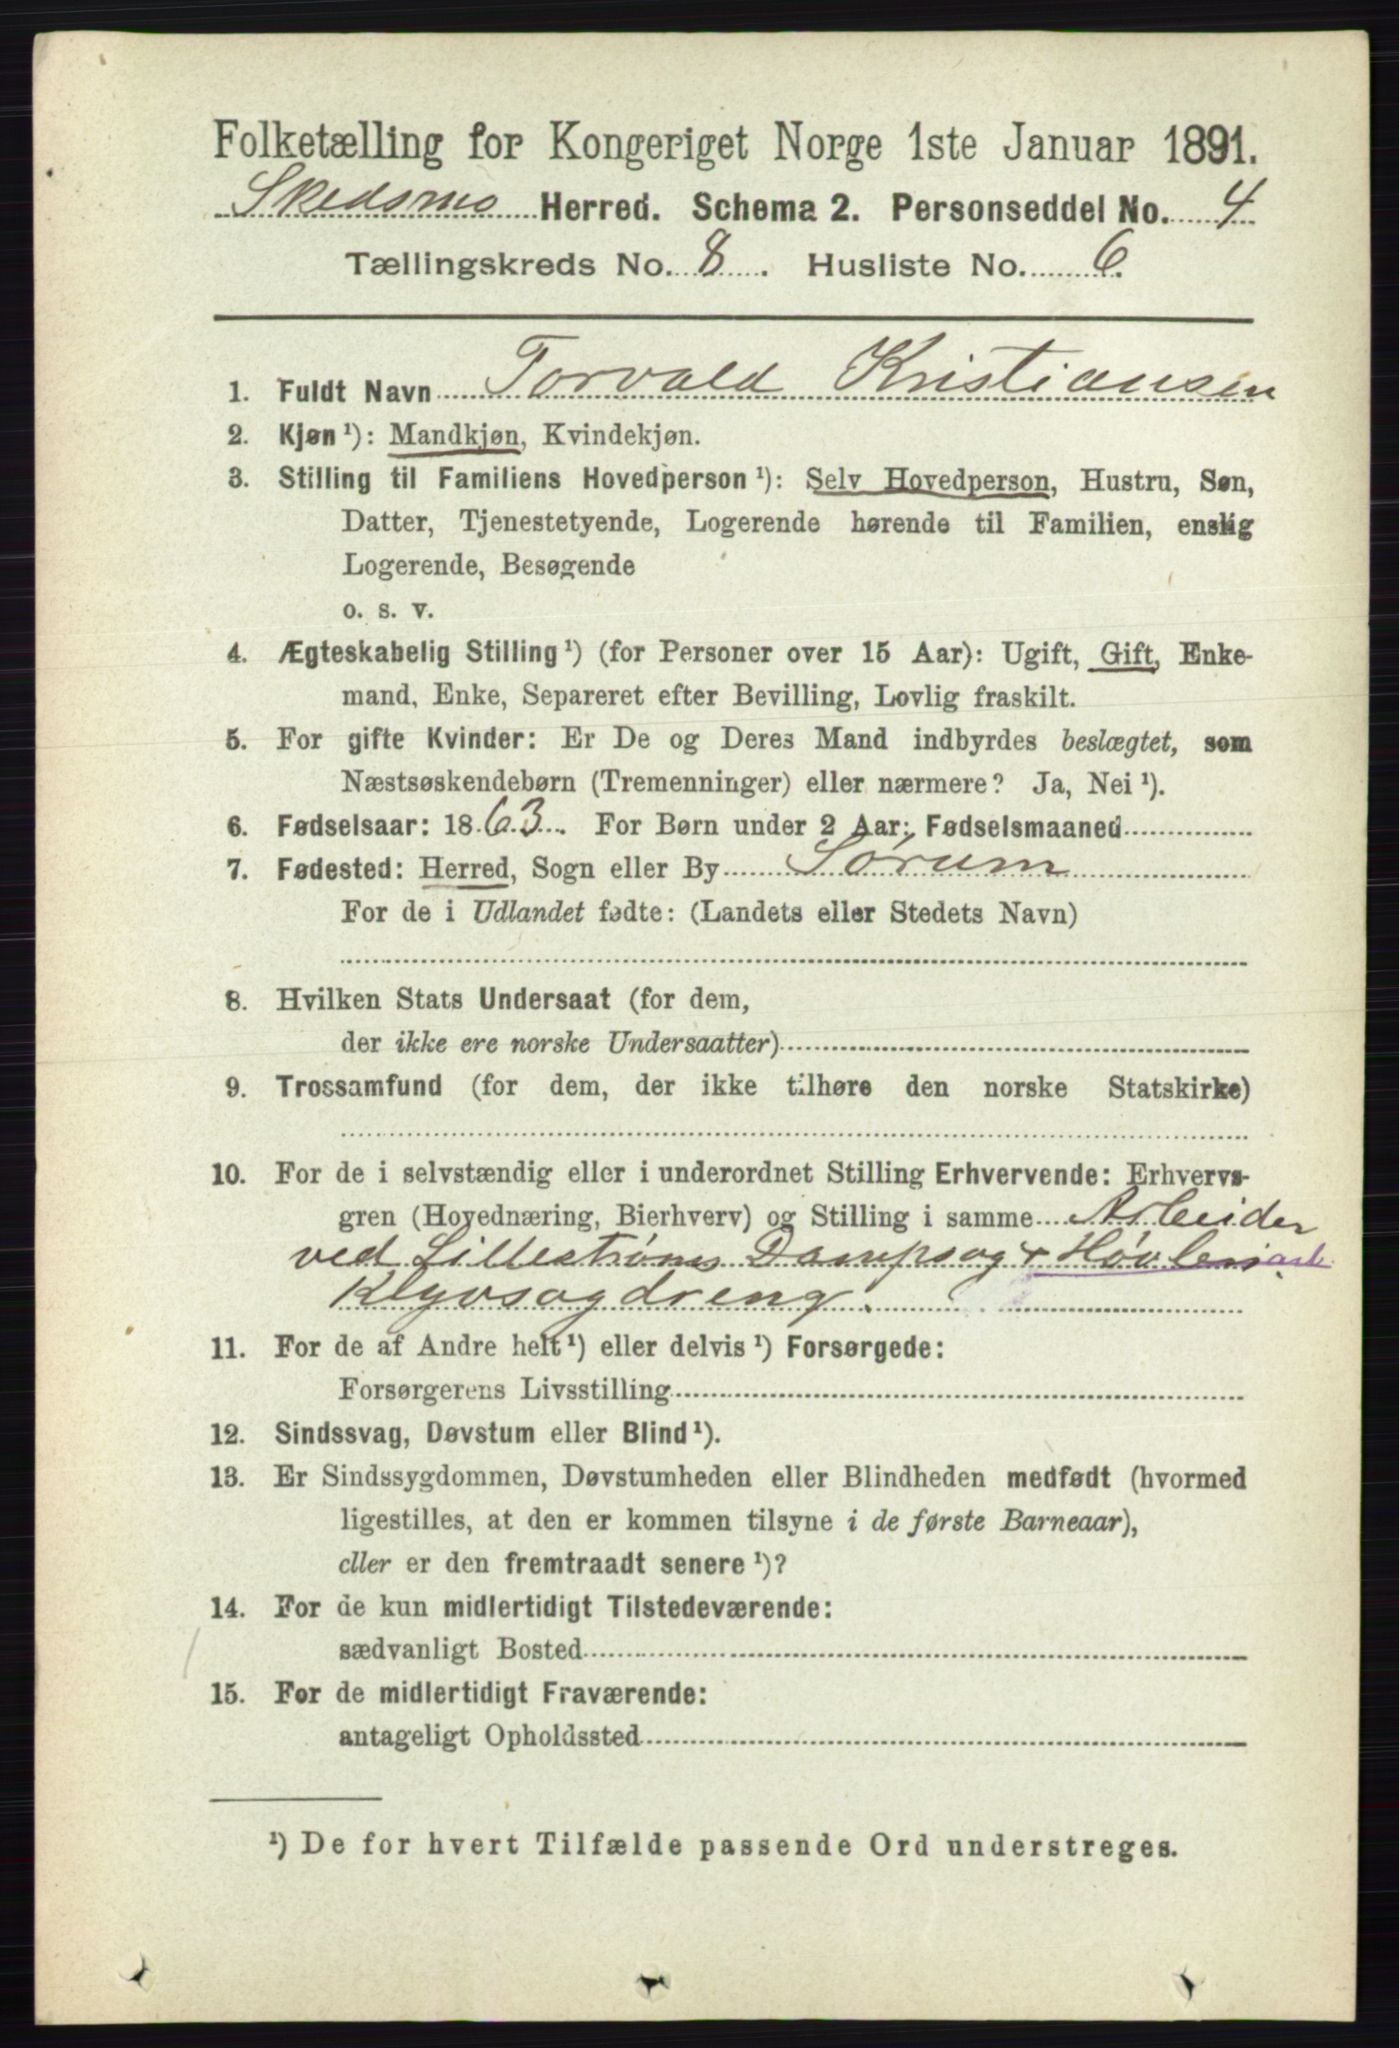 Folketælling for Kongeriget Norge 1ste Januar 1891.
Skedsmo Herred. Schema 2. Personseddel No. 4
Tællingskreds No. 8. Husliste No. 6.
1. Fuldt Navn Torvald Kristiansen
2. Kjøn ¹): Mandkjøn, Kvindekjøn.
3. Stilling til Familiens Hovedperson ¹): Selv Hovedperson, Hustru, Søn,
Datter, Tjenestetyende, Logerende hørende til Familien, enslig
Logerende, Besøgende
o. s. v.
4. Ægteskabelig Stilling ¹) (for Personer over 15 Aar): Ugift, Gift, Enke-
mand, Enke, Separeret efter Bevilling, Lovlig fraskilt.
5. For gifte Kvinder: Er De og Deres Mand indbyrdes beslægtet, som
Næstsøskendebørn (Tremenninger) eller nærmere? Ja, Nei ¹).
6. Fødselsaar: 1863. For Børn under 2 Aar: Fødselsmaaned
7. Fødested: Herred, Sogn eller By Sørum
For de i Udlandet fødte: (Landets eller Stedets Navn)
8. Hvilken Stats Undersaat (for dem,
der ikke ere norske Undersaatter)
9. Trossamfund (for dem, der ikke tilhøre den norske Statskirke)
10. For de i selvstændig eller i underordnet Stilling Erhvervende: Erhvervs-
gren (Hovednæring, Bierhverv) og Stilling i samme Arbeider
ved Lillestrøms Dampsag & Høvleri arb.
Kløvsagdreng.
11. For de af Andre helt ¹) eller delvis ¹) Forsørgede:
Forsørgerens Livsstilling
12. Sindssvag, Døvstum eller Blind ¹).
13. Er Sindssygdommen, Døvstumheden eller Blindheden medfødt (hvormed
ligestilles, at den er kommen tilsyne i de første Barneaar),
eller er den fremtraadt senere ¹)?
14. For de kun midlertidigt Tilstedeværende:
sædvanligt Bosted
15. For de midlertidigt Fraværende:
antageligt Opholdssted
¹) De for hvert Tilfælde passende Ord understreges.